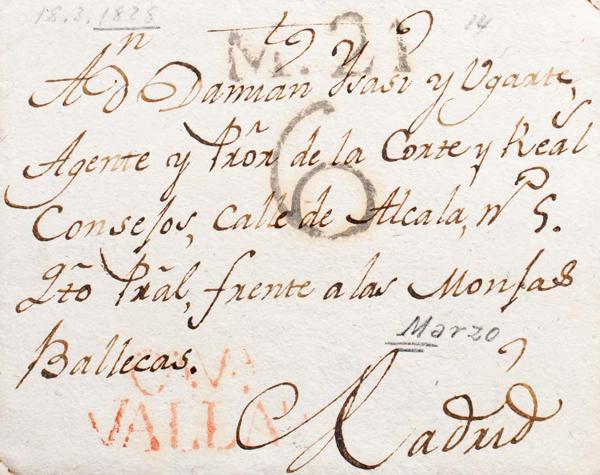 18.3.1828
14
M.21
A Dn Damian Ysasi y Ugarte,
Agente y Prõr de la Corte y Reãl
6
Consejos, calle de Alcala, nº 5.
Qto Prãl, frente a las Monjas
Ballecas.
Marzo
VALLA
Madrid